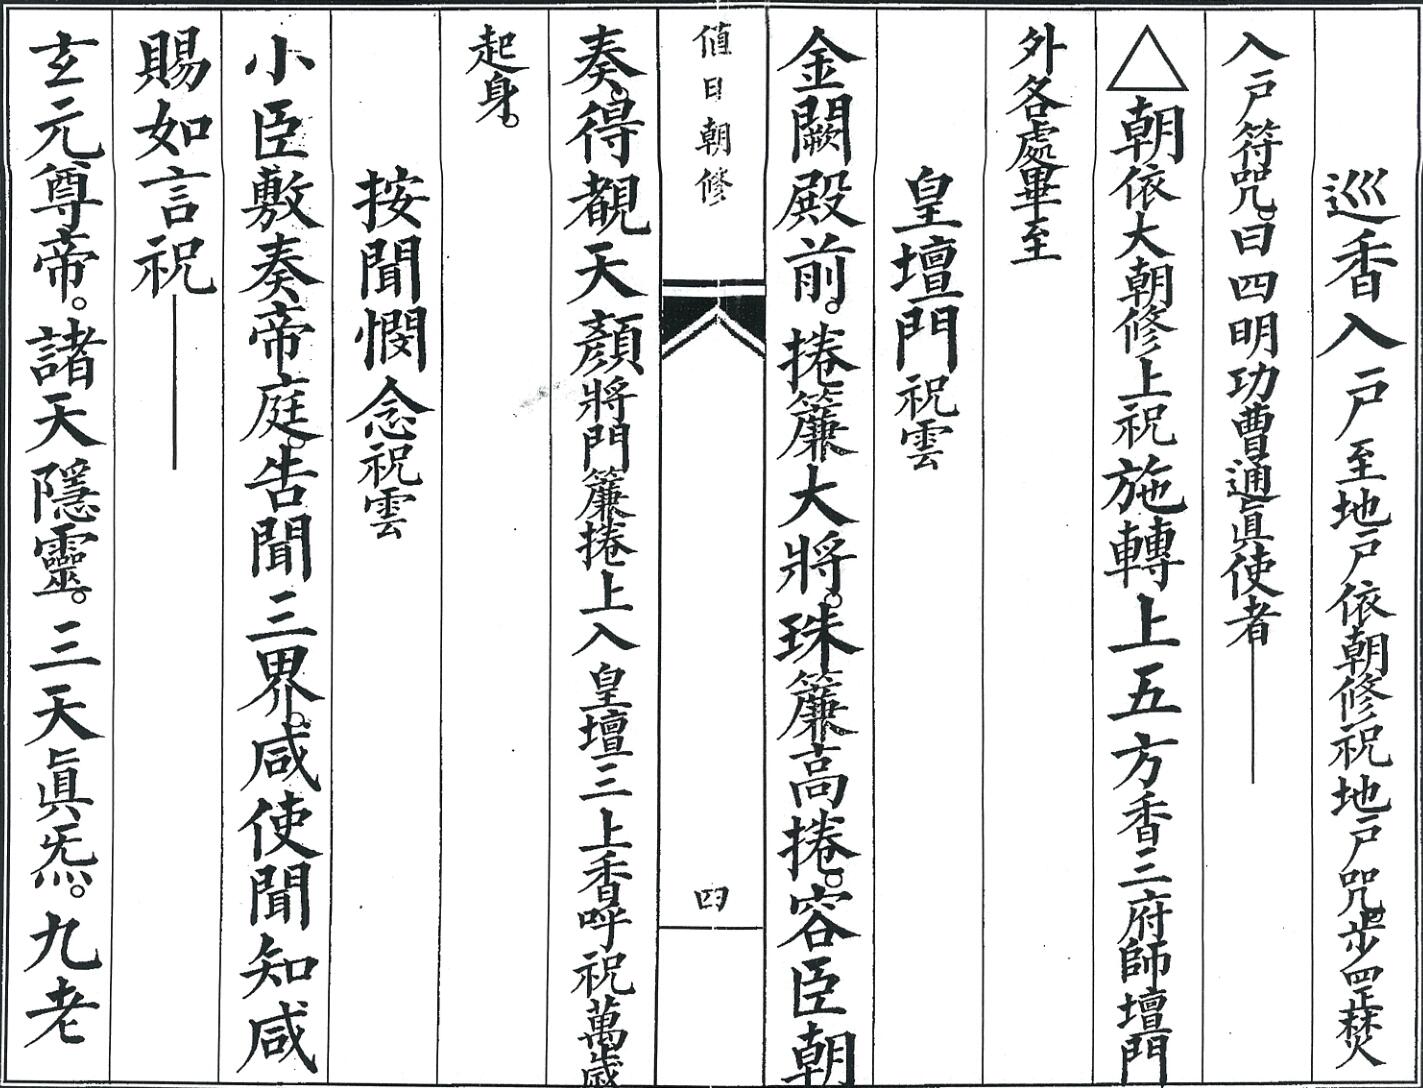 巡香入戶至地戶依朝修祝地戶咒步罡焚
入戶符咒。曰四明功曹通眞使者
△朝依大朝修上祝施轉上五方香三府師壇門
外各處畢至
皇壇門祝雲
金闕殿前。捲簾大將。珠簾高捲。容臣朝
値日朝修
四
奏。得覩天顏將門簾捲上入皇壇三上香呼祝萬歲
起身。
按聞憫念祝雲
小臣敷奏帝庭。告聞三界。咸使聞知咸
賜如言祝
玄元尊帝。諸天隱靈。三天眞炁。九老